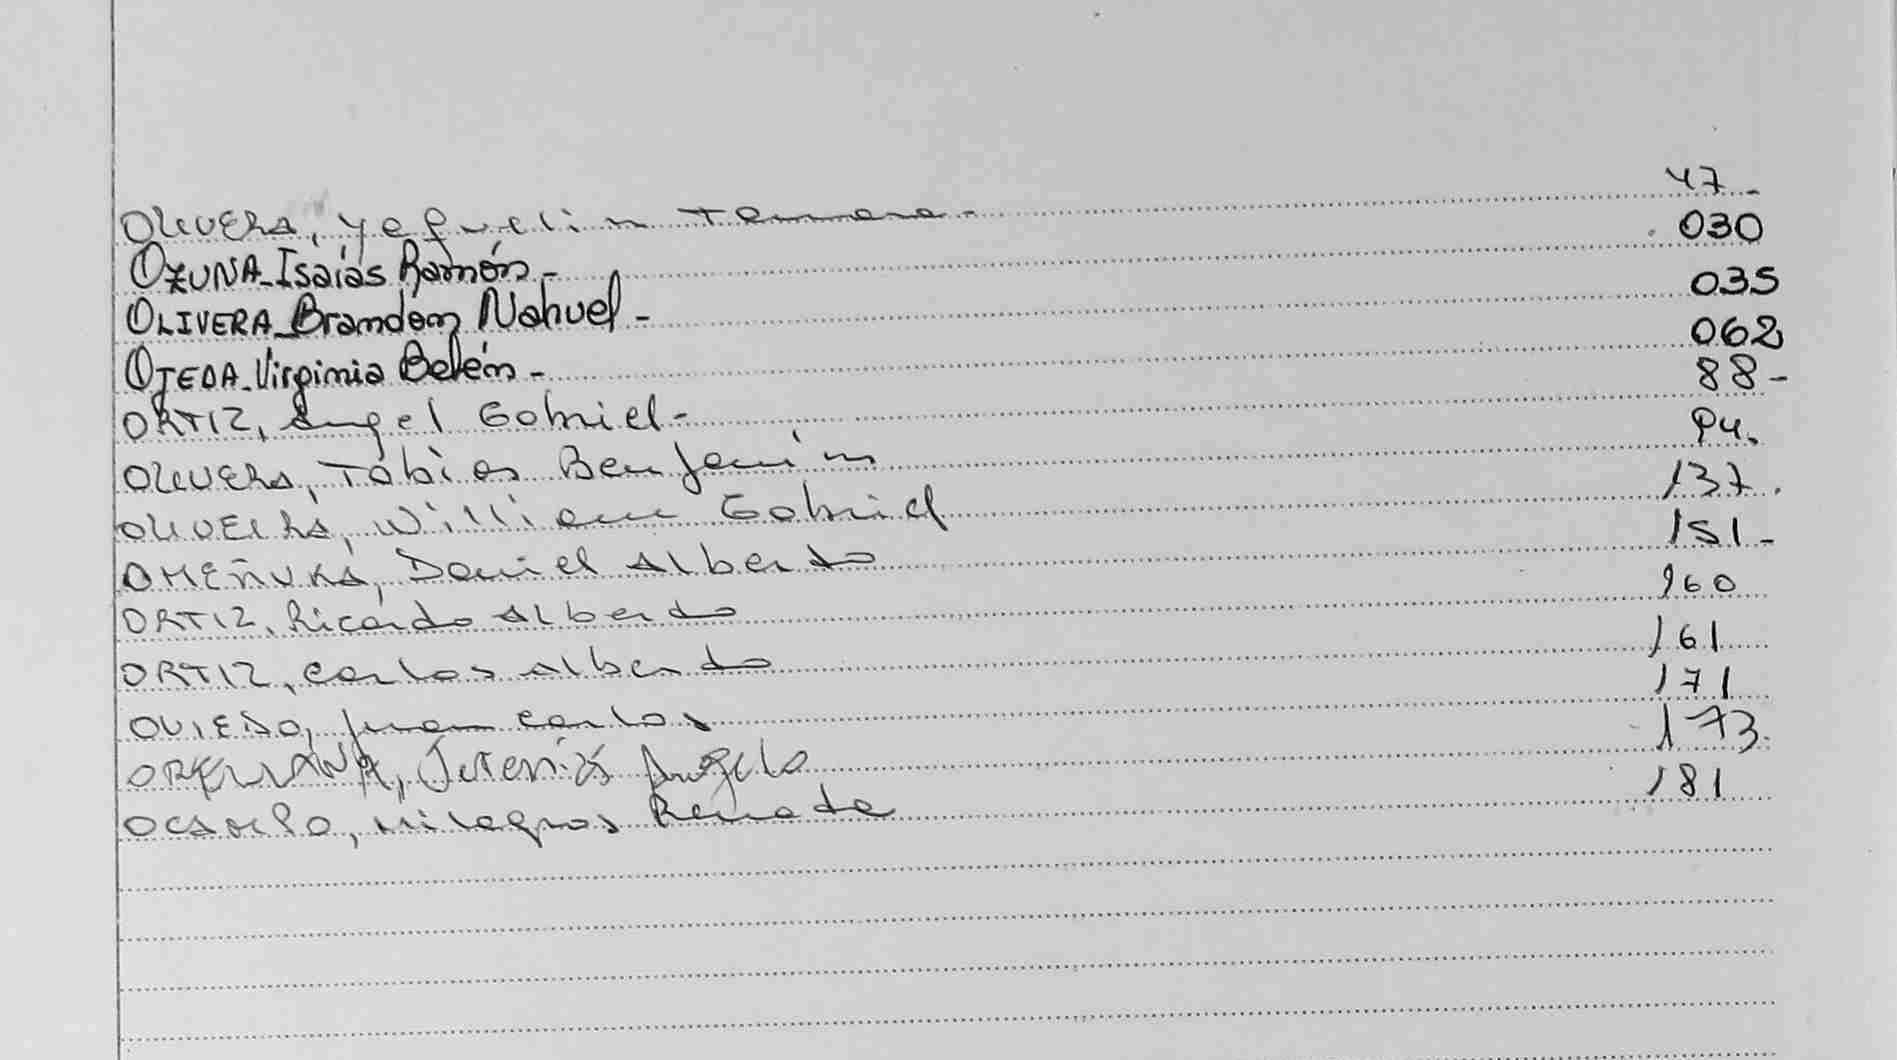 OLIVERA, Yefuelin Tamara - 47 -
OZUNA - Isaías Ramón - 030
OLIVERA - Brandon Nahuel - 035
OJEDA - Virginia Belén - 062
ORTIZ, Angel Gabriel - 88 -
OLIVERA, Tobias Benjamín 94.
OLIVERA, William Gabriel 137.
Daniel Alberto 151 -
ORTIZ, Ricardo Alberto 160
ORTIZ, Carlos Alberto 161
OVIEDO, Juan Carlos 171
ORELLANA, Jeremías Angelo 173.
OCAMPO, Milagros Renata 181